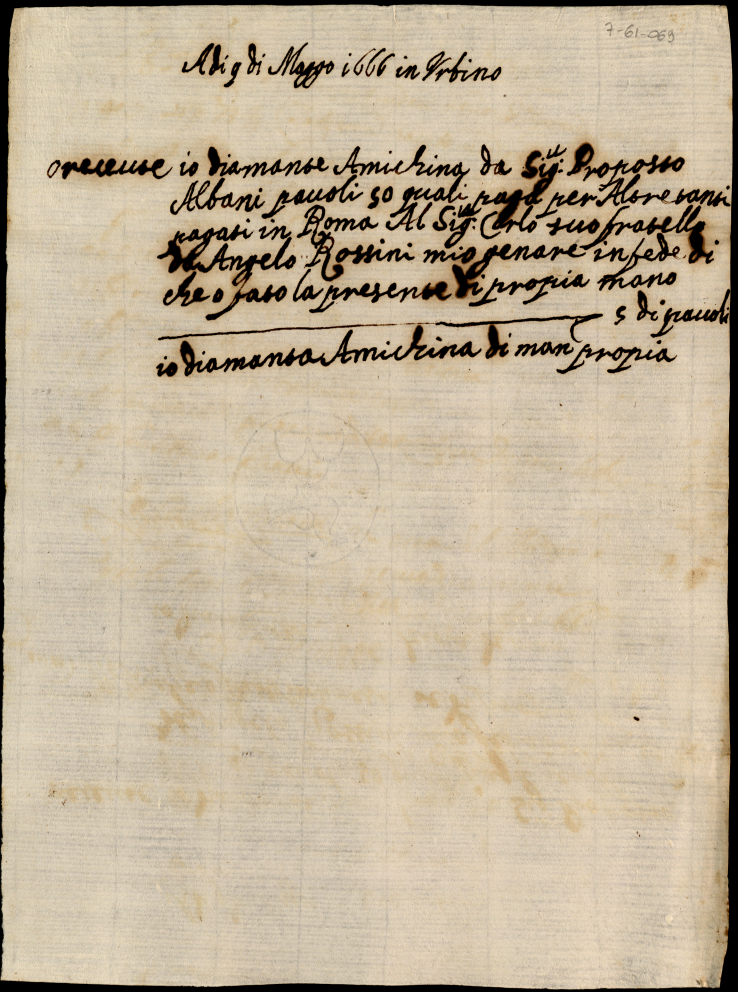 7-61-069
Adi 9 di Maggo 1666 in Urbino
o receute io diamante Amichina da Sig.re Proposto
Albani pauoli 50 quali paga per Altre tanti
pagati in Roma Al Sig.re Carlo suo fratello
da Angelo Rossini mio genare in fede di
che o fato la presente di propia mano
5 di pauoli
io diamanta Amichina di man propia